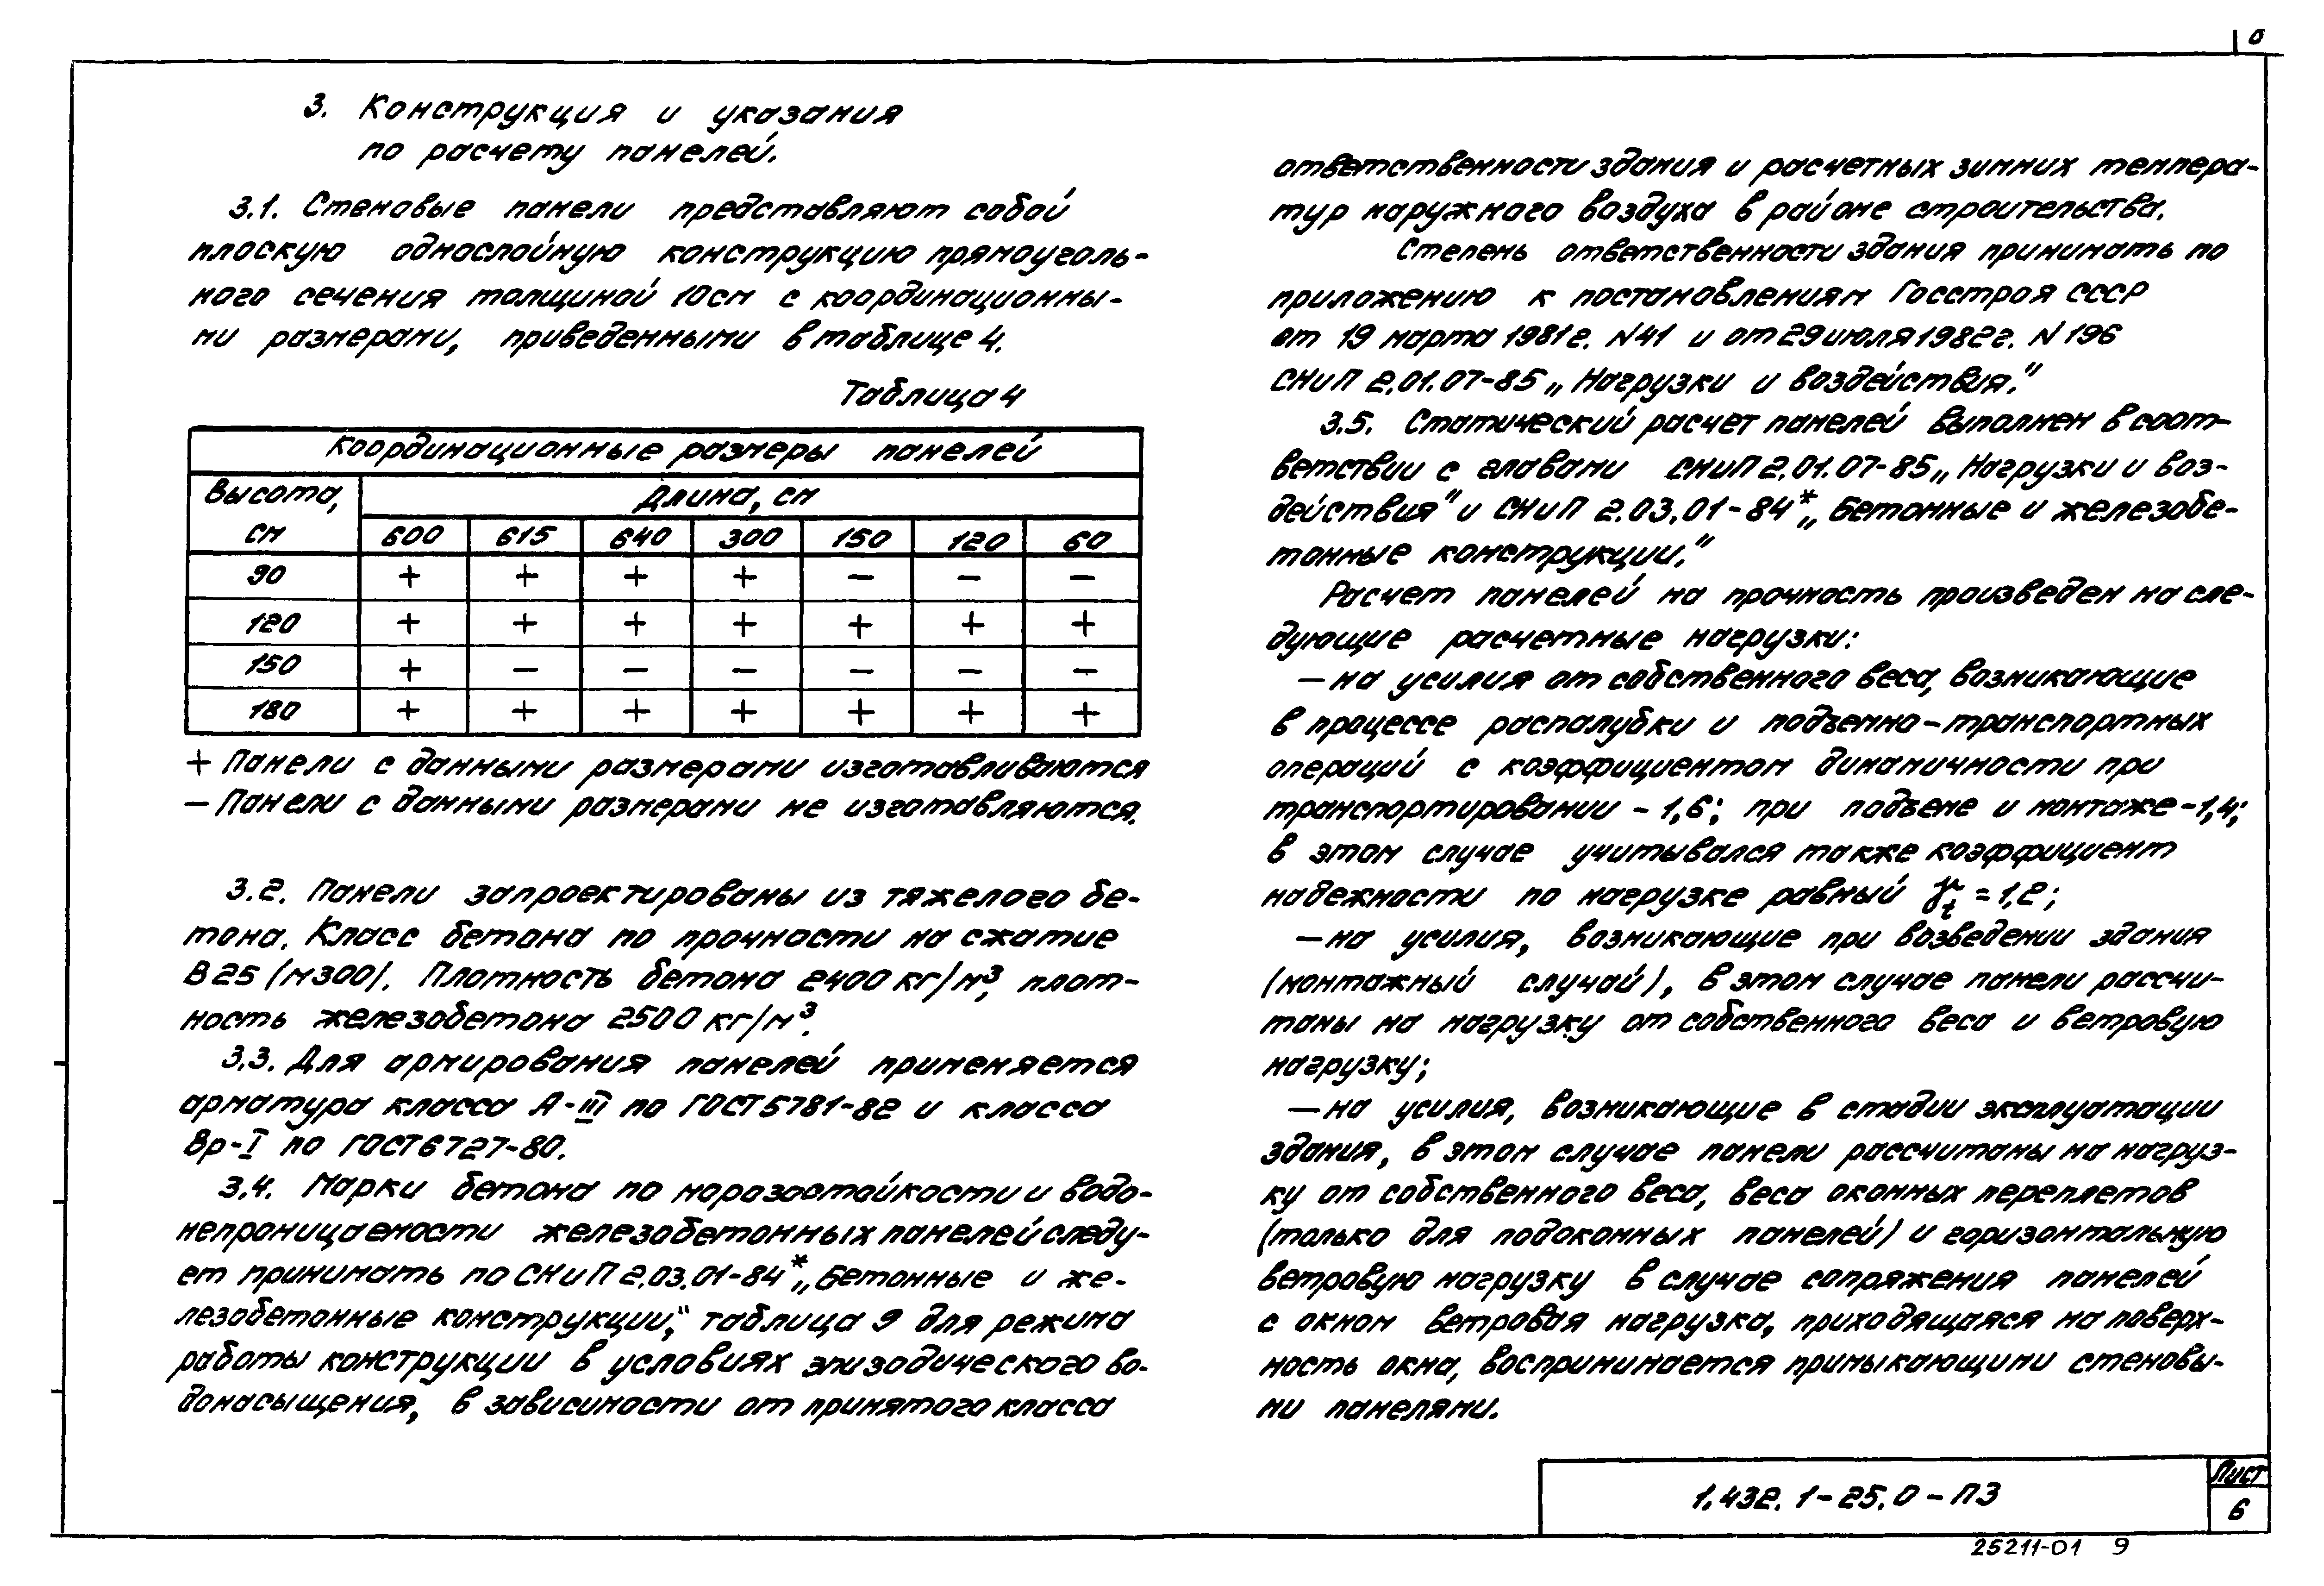 0
3. Конструкция и указания
по расчету панелей.
3.1. Стеновые панели представляют собой
плоскую однослойную конструкцию прямоуголь-
ного сечения толщиной 10см с координационны-
ми размерами, приведенными в таблице 4.
Таблица 4
Координационные размеры панелей
Высота, см Длина, см
600 615 640 300 150 120 60
90 + + + + − − −
120 + + + + + + +
150 + − − − − − −
180 + + + + + + +
+ Панели с данными размерами изготавливаются
− Панели с данными размерами не изготавляются.
3.2. Панели запроектированы из тяжелого бе-
тона. Класс бетона по прочности на сжатие
В25 (М300). Плотность бетона 2400 кг/м³, плот-
ность железобетона 2500 кг/м³.
3.3. Для армирования панелей применяется
арматура класса А-III по ГОСТ 5781-82 и класса
Вр-I по ГОСТ 6727-80.
3.4. Марки бетона по морозостойкости и водо-
непроницаемости железобетонных панелей следу-
ет принимать по СНиП 2.03.01-84* „Бетонные и же-
лезобетонные конструкции," таблица 9 для режима
работы конструкции в условиях эпизодического во-
донасыщения, в зависимости от принятого класса
ответственности здания и расчетных зимних темпера-
тур наружного воздуха в районе строительства.
Степень ответственности здания принимать по
приложению к постановлениям Госстроя СССР
от 19 марта 1981г. N41 и от 29 июля 1982г. N 196
СНиП 2.01.07-85 „Нагрузки и воздействия."
3.5. Статический расчет панелей выполнен в соот-
ветствии с главами СНиП 2.01.07-85 „Нагрузки и воз-
действия" и СНиП 2.03.01-84* „Бетонные и железобе-
тонные конструкции."
Расчет панелей на прочность произведен на сле-
дующие расчетные нагрузки:
— на усилия от собственного веса, возникающие
в процессе распалубки и подъемно-транспортных
операций с коэффициентом динамичности при
транспортировании - 1,6; при подъеме и монтаже - 1,4;
в этом случае учитывался также коэффициент
надежности по нагрузке равный γt = 1,2;
— на усилия, возникающие при возведении здания
(монтажный случай), в этом случае панели рассчи-
таны на нагрузку от собственного веса и ветровую
нагрузку;
— на усилия, возникающие в стадии эксплуатации
здания, в этом случае панели рассчитаны на нагруз-
ку от собственного веса, веса оконных переплетов
(только для подоконных панелей) и горизонтальную
ветровую нагрузку в случае сопряжения панелей
с окном ветровая нагрузка, приходящаяся на поверх-
ность окна, воспринимается примыкающими стеновы-
ми панелями.
1.432.1-25.0-ПЗ
Лист
6
25211-01 9